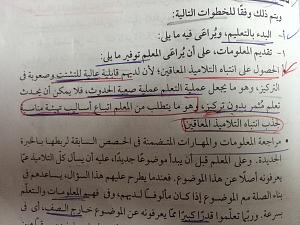 ويتم ذلك وفقًا للخطوات التالية:
١- البدء بالتعليم، ويُراعَى فيه ما يلي:
١- تقديم المعلومات، على أن يُراعَى المعلم توفير ما يلي:
الحصول على انتباه التلاميذ المعاقين؛ لأن لديهم قابلية عالية للتشتت وصعوبة في
التركيز، وهو ما يجعل عملية التعلم عملية صعبة الحدوث، فلا يمكن أن يحدث
تعلم مُثمر بدون تركيز، وهو ما يتطلب من المعلم اتباع أساليب تهيئة مناسبة
لجذب انتباه التلاميذ المعاقين.
مراجعة المعلومات والمهارات المتضمنة في الحصص السابقة لربطها بالخبرة
الجديدة. وعلى المعلم قبل أن يبدأ موضوعًا جديدًا، عليه أن يسأل كل التلاميذ عمّا
يعرفونه أصلًا عن هذا الموضوع. فعندما يطرح عليهم هذا السؤال، يساعدهم في
بناء الصلة مع الموضوع إذا كان مألوفًا لديهم، وفي فهم المعلومات والتعلُّم
بسرعة. وربّما تعلّموا قدرًا كبيرًا ممّا يعرفونه عن الموضوع خارج الصف، أي